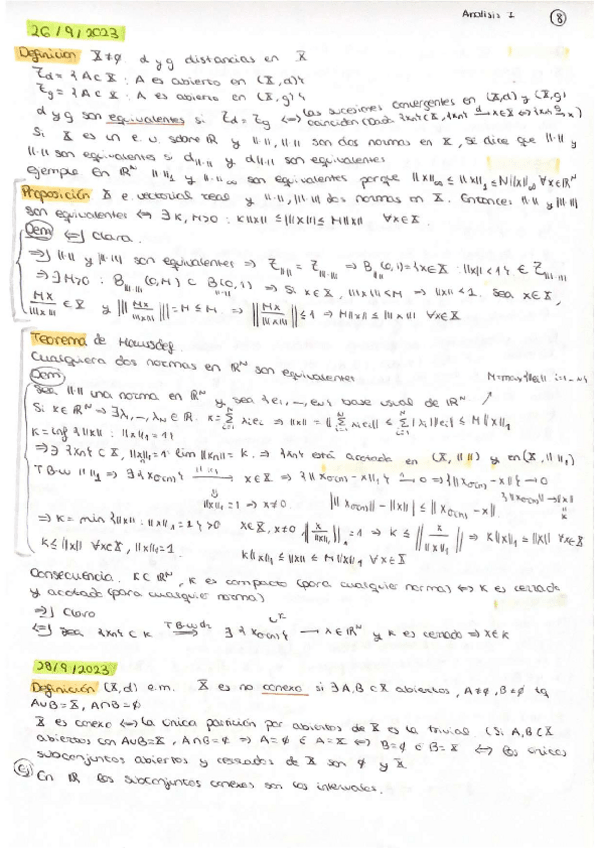 Analisis I 8
26/9/2023
Definicion X≠∅ d y g distancias en X
τd = {A⊂X : A es abierto en (X,d)}
τg = {A⊂X : A es abierto en (X,g)}
d y g son equivalentes si τd = τg ⟺ las sucesiones convergentes en (X,d) y (X,g) coinciden
Si X es un e.v. sobre R y ||·||, ||·|| son dos normas en X, se dice que ||·|| y
||·|| son equivalentes si d||·|| y d||·|| son equivalentes
Ejemplo En R^N || ||1 y ||·||∞ son equivalentes porque ||x||∞ ≤ ||x||1 ≤ N||x||∞ ∀x∈R^N
Proposición X e. vectorial real y ||·||, |||·||| dos normas en X. Entonces ||·|| y |||·|||
son equivalentes ⟺ ∃ K, M>0 : K||x|| ≤ |||x||| ≤ M||x|| ∀x∈X.
Dem ⟸] Clara.
⟹] ||·|| y |||·||| son equivalentes ⟹ τ||·|| = τ|||·||| ⟹ B||·||(0,1) = {x∈X : ||x|| < 1} ∈ τ|||·|||
⟹ ∃ M>0 : B|||·|||(0,M) ⊂ B||·||(0,1) ⟹ Si x∈X, |||x|||<M ⟹ ||x||<1. Sea x∈X,
Mx/|||x||| ∈ X y |||Mx/|||x|||||| = M ≤ M ⟹ ||Mx/|||x|||||≤1 ⟹ M||x|| ≤ |||x||| ∀x∈X
Teorema de Hausdorff
Cualquiera dos normas en R^N son equivalentes
Dem M=max{||ei|| i=1..N}
Sea ||·|| una norma en R^N y sea {e1, ..., eN} base usual de R^N
Si x∈R^N ⟹ ∃ λ1, ..., λN ∈ R. x = Σ λi ei ⟹ ||x|| = ||Σ λi ei|| ≤ Σ |λi| ||ei|| ≤ M||x||1
K = inf {||x|| : ||x||1 = 1}
⟹ ∃ {xn} ⊂ X, ||xn||1 = 1 lim ||xn|| = K. ⟹ {xn} está acotada en (X, || ||) y en (X, || ||1)
T B-W || ||1 ⟹ ∃ {xσ(n)} → x∈X ⟹ {||xσ(n) - x||1} → 0 ⟹ {||xσ(n) - x||} → 0
||x||1 = 1 ⟹ x≠0. | ||xσ(n)|| - ||x|| | ≤ ||xσ(n) - x|| {||xσ(n)||} → ||x||
⟹ K = min {||x|| : ||x||1 = 1} > 0 x∈X, x≠0 ||x/||x||1||1 = 1 ⟹ K ≤ ||x/||x||1|| ⟹ K||x||1 ≤ ||x|| ∀x∈X
K ≤ ||x|| ∀x∈X, ||x||1 = 1. K||x||1 ≤ ||x|| ≤ M||x||1 ∀x∈X
Consecuencia. K⊂R^N, K es compacto (para cualquier norma) ⟺ K es cerrado
y acotado (para cualquier norma)
⟹] Claro
⟸] Sea {xn} ⊂ K ⟹ ∃ {xσ(n)} → x∈R^N y K es cerrado ⟹ x∈K
28/9/2023
Definición (X,d) e.m. X es no conexo si ∃ A,B ⊂ X abiertos, A≠∅, B≠∅ tq
A∪B=X, A∩B=∅
X es conexo ⟺ la única partición por abiertos de X es la trivial. (Si A,B⊂X
abiertos con A∪B=X, A∩B=∅ ⟹ A=∅ ó A=X ⟺ B=∅ ó B=X ⟺ los únicos
subconjuntos abiertos y cerrados de X son ∅ y X
Ej En R los subconjuntos conexos son los intervalos.